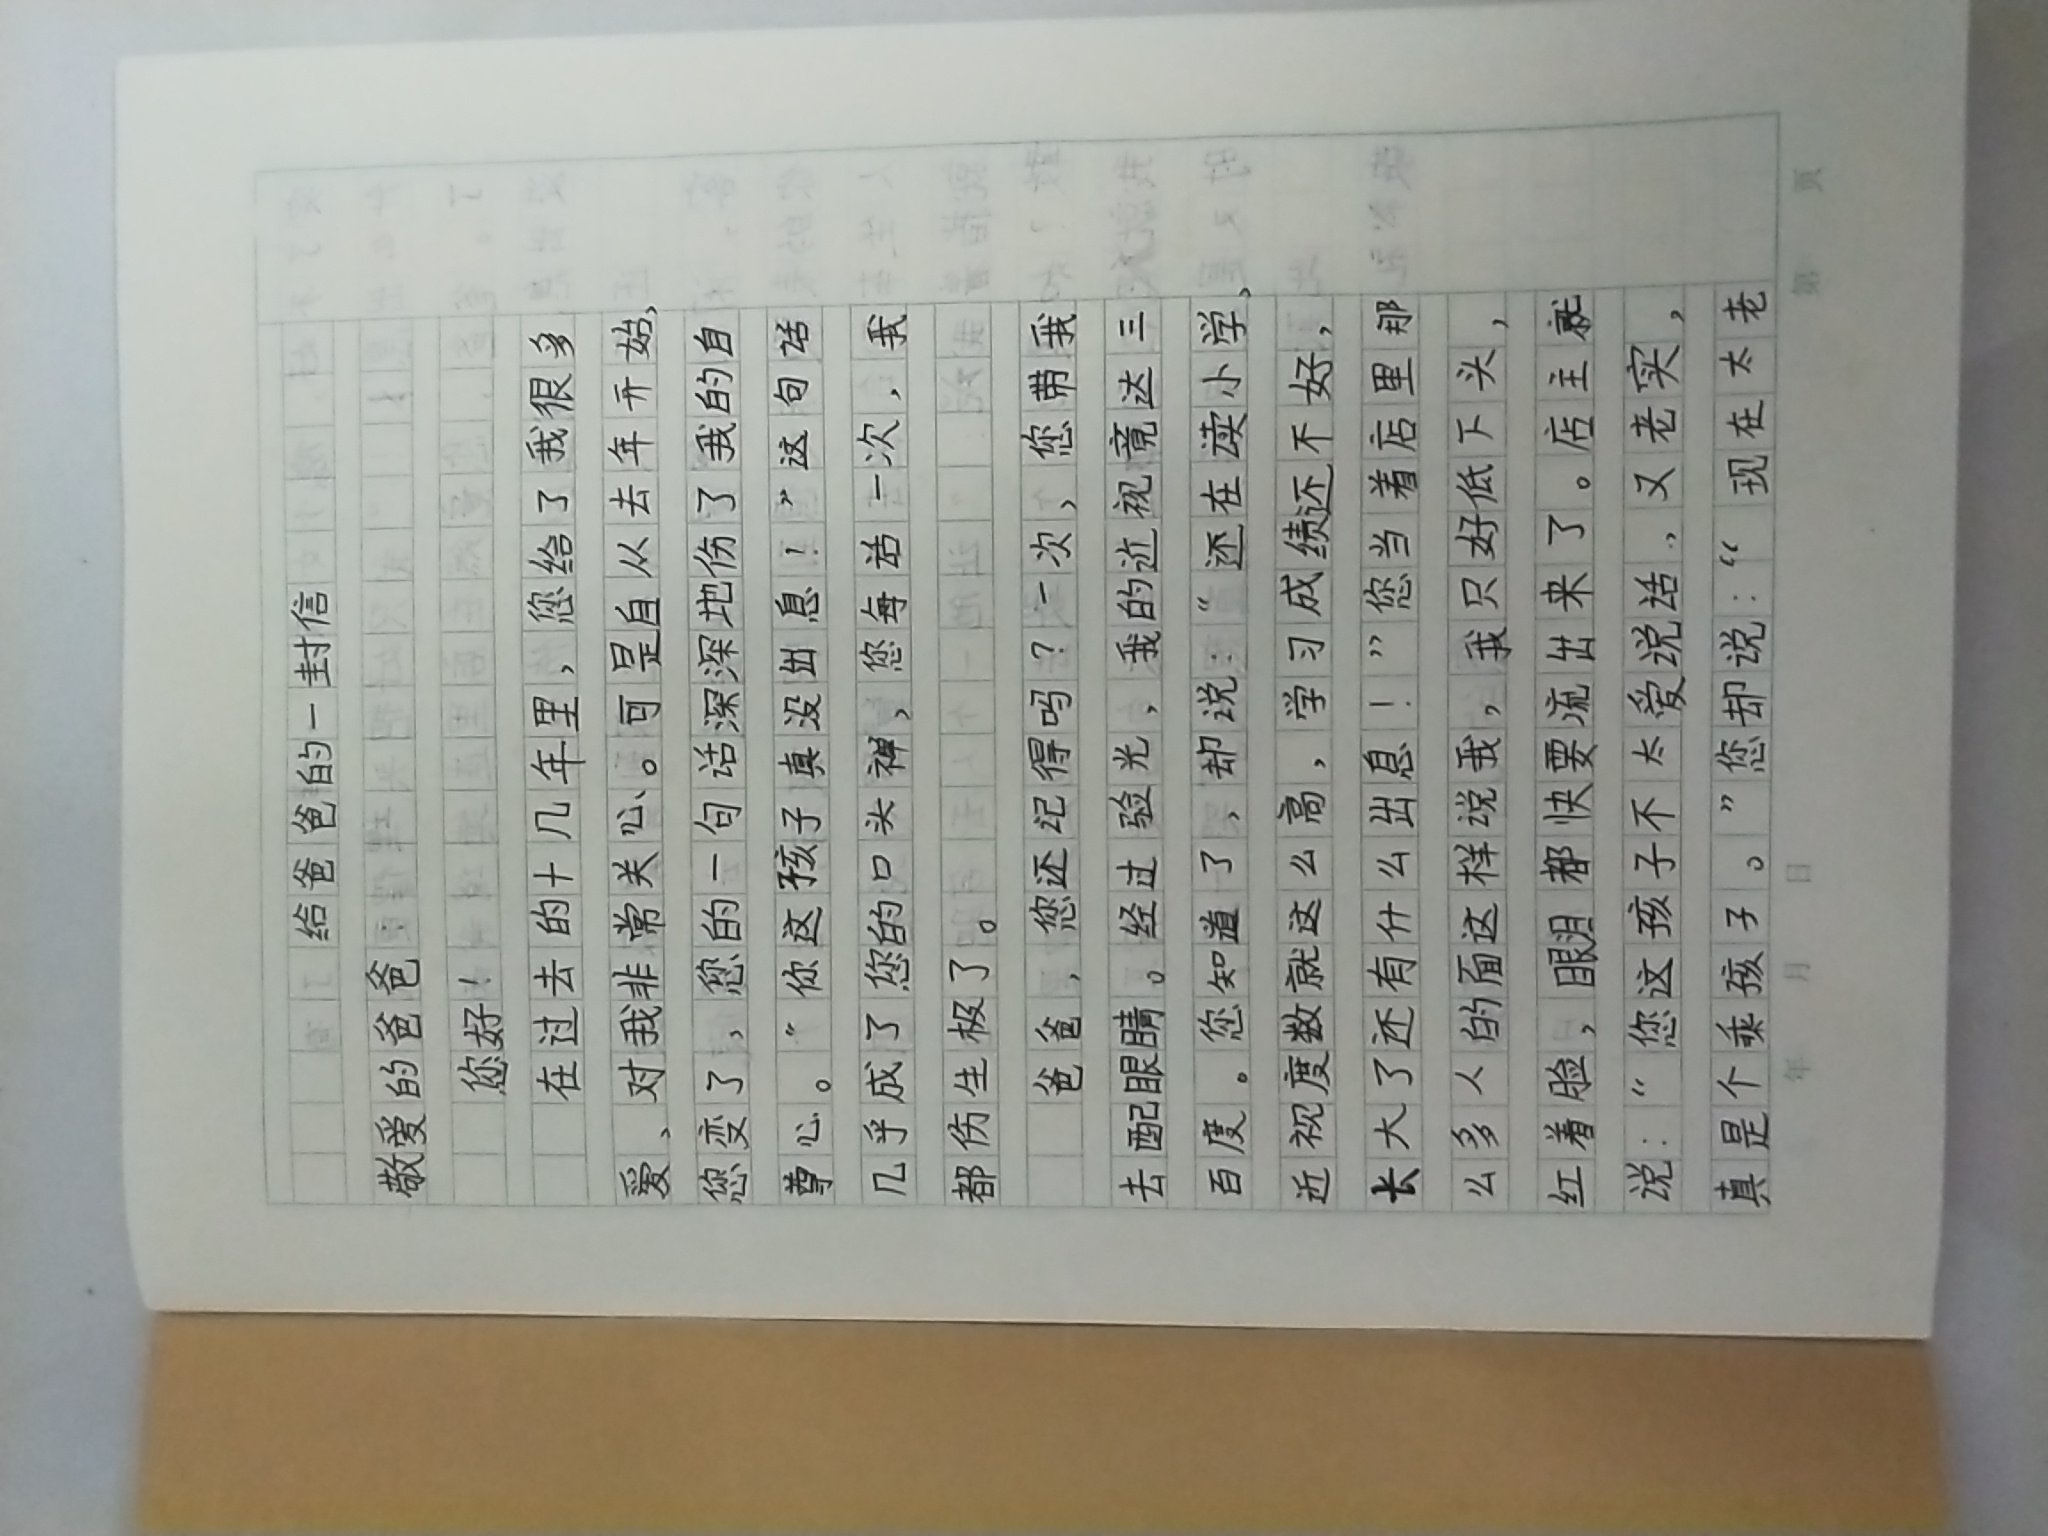 给爸爸的一封信
敬爱的爸爸
您好！
在过去的十几年里，您给了我很多
爱、对我非常关心。可是自从去年开始，
您变了，您的一句话深深地伤了我的自
尊心。“你这孩子真没出息！”这句话
几乎成了您的口头禅，您每话一次，我
都伤生极了。
爸爸，您还记得吗？一次、您带我
去配眼睛。经过验光，我的近视竟达三
百度。您知道了，却说：“还在读小学，
近视度数就这么高，学习成绩还不好，
长大了还有什么出息！”您当着店里那
么多人的面这样说我，我只好低下头，
红着脸，眼泪都快要流出来了。店主就
说：“您这孩子不太爱说话，又老实，
真是个乘孩子。”您却说：“现在太老
年 月 日 第 页